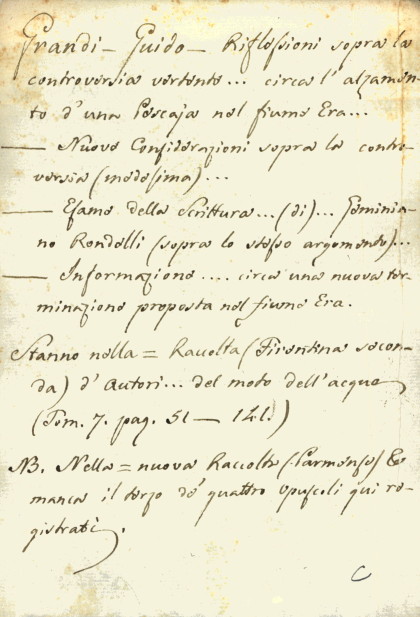 Grandi — Guido — Riflessioni sopra la
controversia vertente... circa l'alzamen-
to d'una Pescaja nel fiume Era...
— Nuove Considerazioni sopra la contro-
versia (medesima)...
— Esame della Scrittura... (di)... Geminia-
no Rondelli (sopra lo stesso argomento)...
— Informazione .... circa una nuova ter-
minazione proposta nel fiume Era.
Stanno nella = Raccolta (Fiorentina secon-
da) d'Autori... del moto dell'acque
(Tom. 7. pag. 51 — 121.)
NB. Nella = nuova Raccolta (Parmense)
manca il terzo de' quattro opuscoli qui re-
gistrati.
C